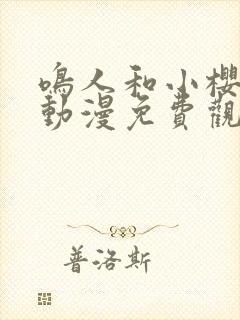 鳴人和小櫻
動漫免費觀
普洛斯